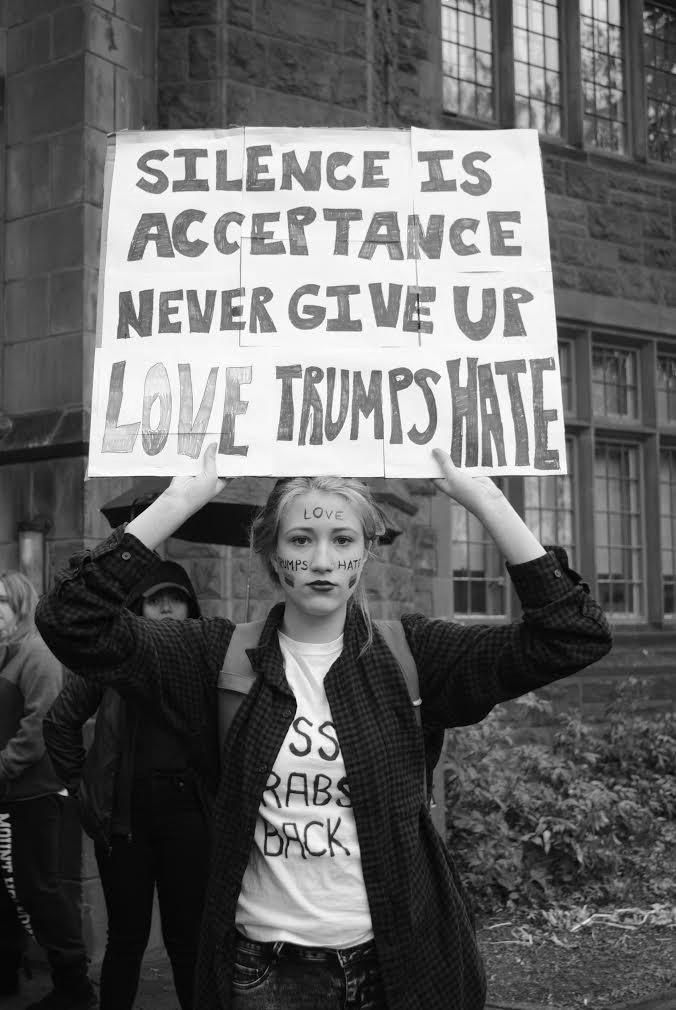 SILENCE IS
ACCEPTANCE
NEVER GIVE UP
LOVE TRUMPS HATE
LOVE
RUMPS HATE
SS
RABS
BACK
MOUNT